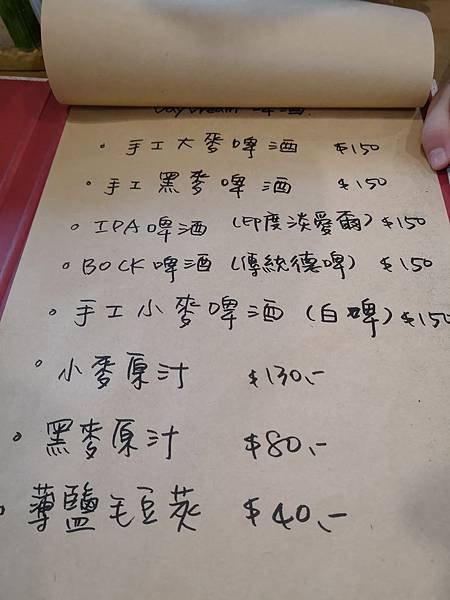 Daydream 啤酒
手工大麥啤酒 $150
手工黑麥啤酒 $150
IPA啤酒 (印度淡愛爾) $150
BOCK啤酒 (傳統德啤) $150
手工小麥啤酒 (白啤) $150
小麥原汁 $130.-
黑麥原汁 $80.-
薄鹽毛豆莢 $40.-